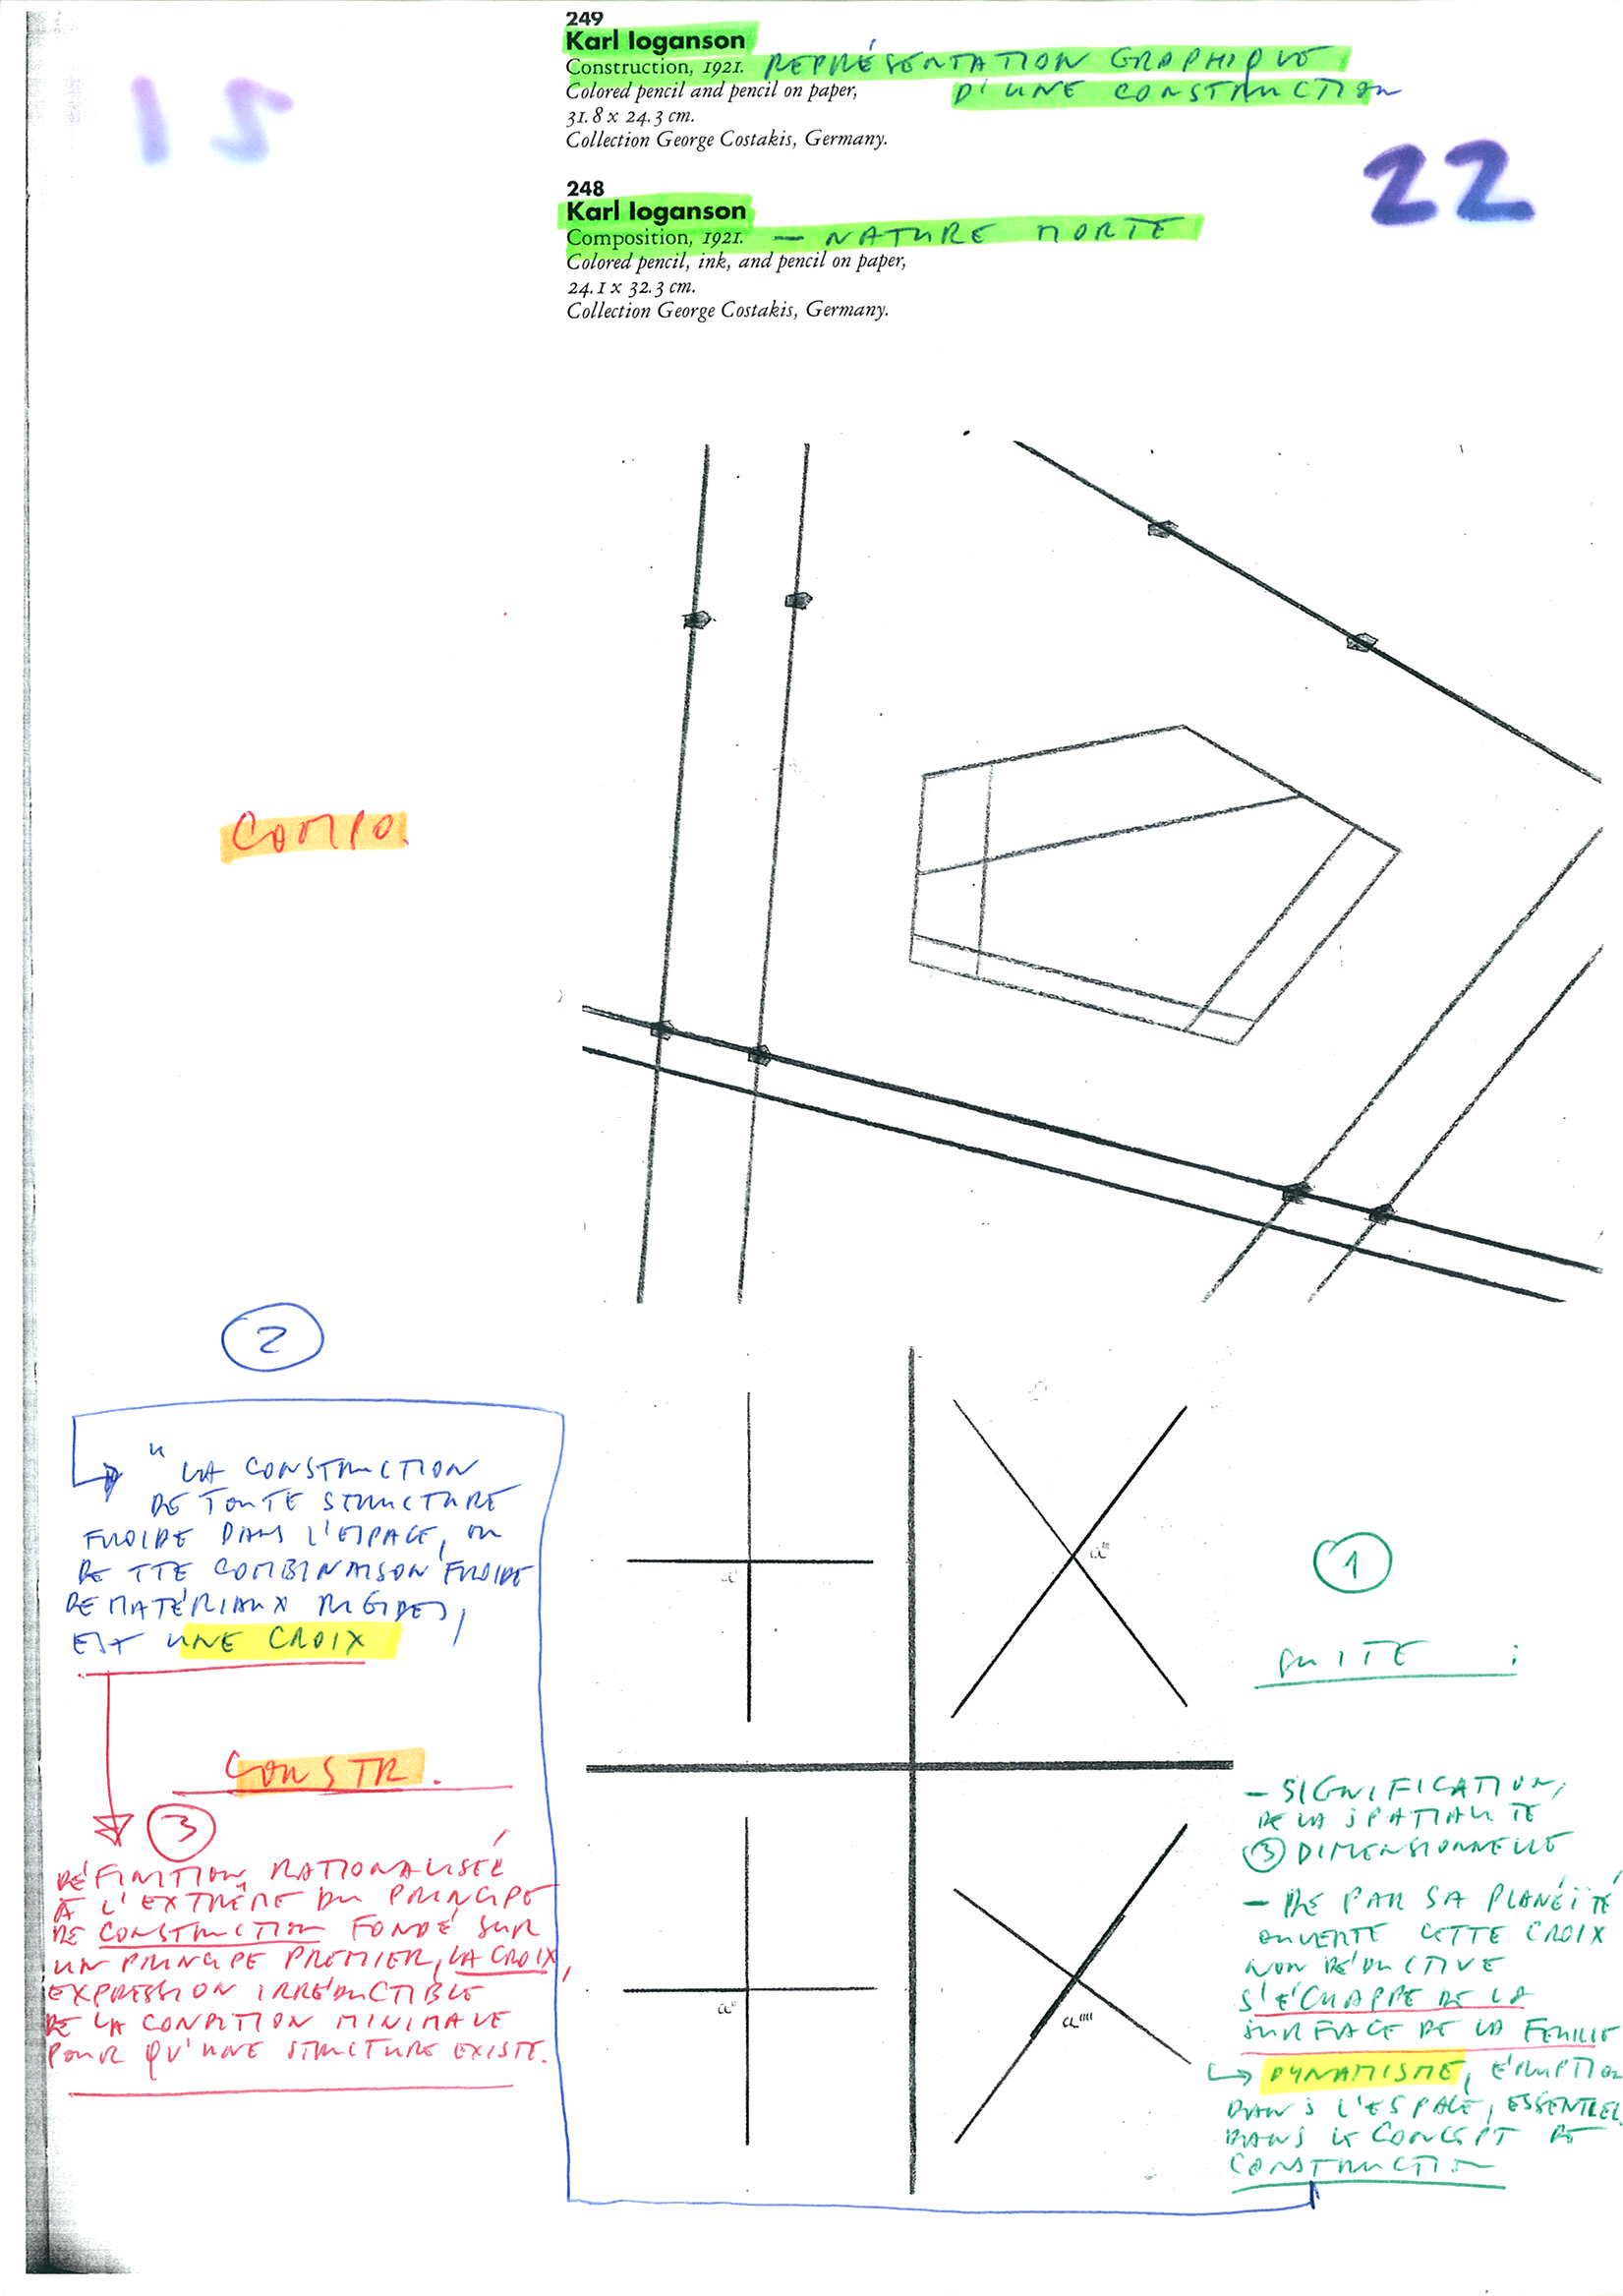 249
Karl Ioganson
Construction, 1921. REPRÉSENTATION GRAPHIQUE
Colored pencil and pencil on paper, D'UNE CONSTRUCTION
31.8 x 24.3 cm.
Collection George Costakis, Germany.
15
22
248
Karl Ioganson
Composition, 1921. — NATURE MORTE
Colored pencil, ink, and pencil on paper,
24.1 x 32.3 cm.
Collection George Costakis, Germany.
COMPO.
2
" LA CONSTRUCTION
DE TOUTE STRUCTURE
FROIDE DANS L'ESPACE, OU
DE TTE COMBINAISON FROIDE
DE MATÉRIAUX RIGIDES,
EST UNE CROIX
CONSTR.
3
DÉFINITION RATIONALISÉE
À L'EXTRÊME DU PRINCIPE
DE CONSTRUCTION FONDÉ SUR
UN PRINCIPE PREMIER, LA CROIX,
EXPRESSION IRRÉDUCTIBLE
DE LA CONDITION MINIMALE
POUR QU'UNE STRUCTURE EXISTE.
a"
a'''
1
SUITE :
— SIGNIFICATION,
DE LA SPATIALITÉ
3 DIMENSIONNELLE
— DE PAR SA PLANÉITÉ
OUVERTE CETTE CROIX
NON DÉDUCTIVE
S'ÉCHAPPE DE LA
SURFACE DE LA FEUILLE
DYNAMISME, ÉRUPTION
DANS L'ESPACE, ESSENTIEL
DANS LE CONCEPT DE
CONSTRUCTION